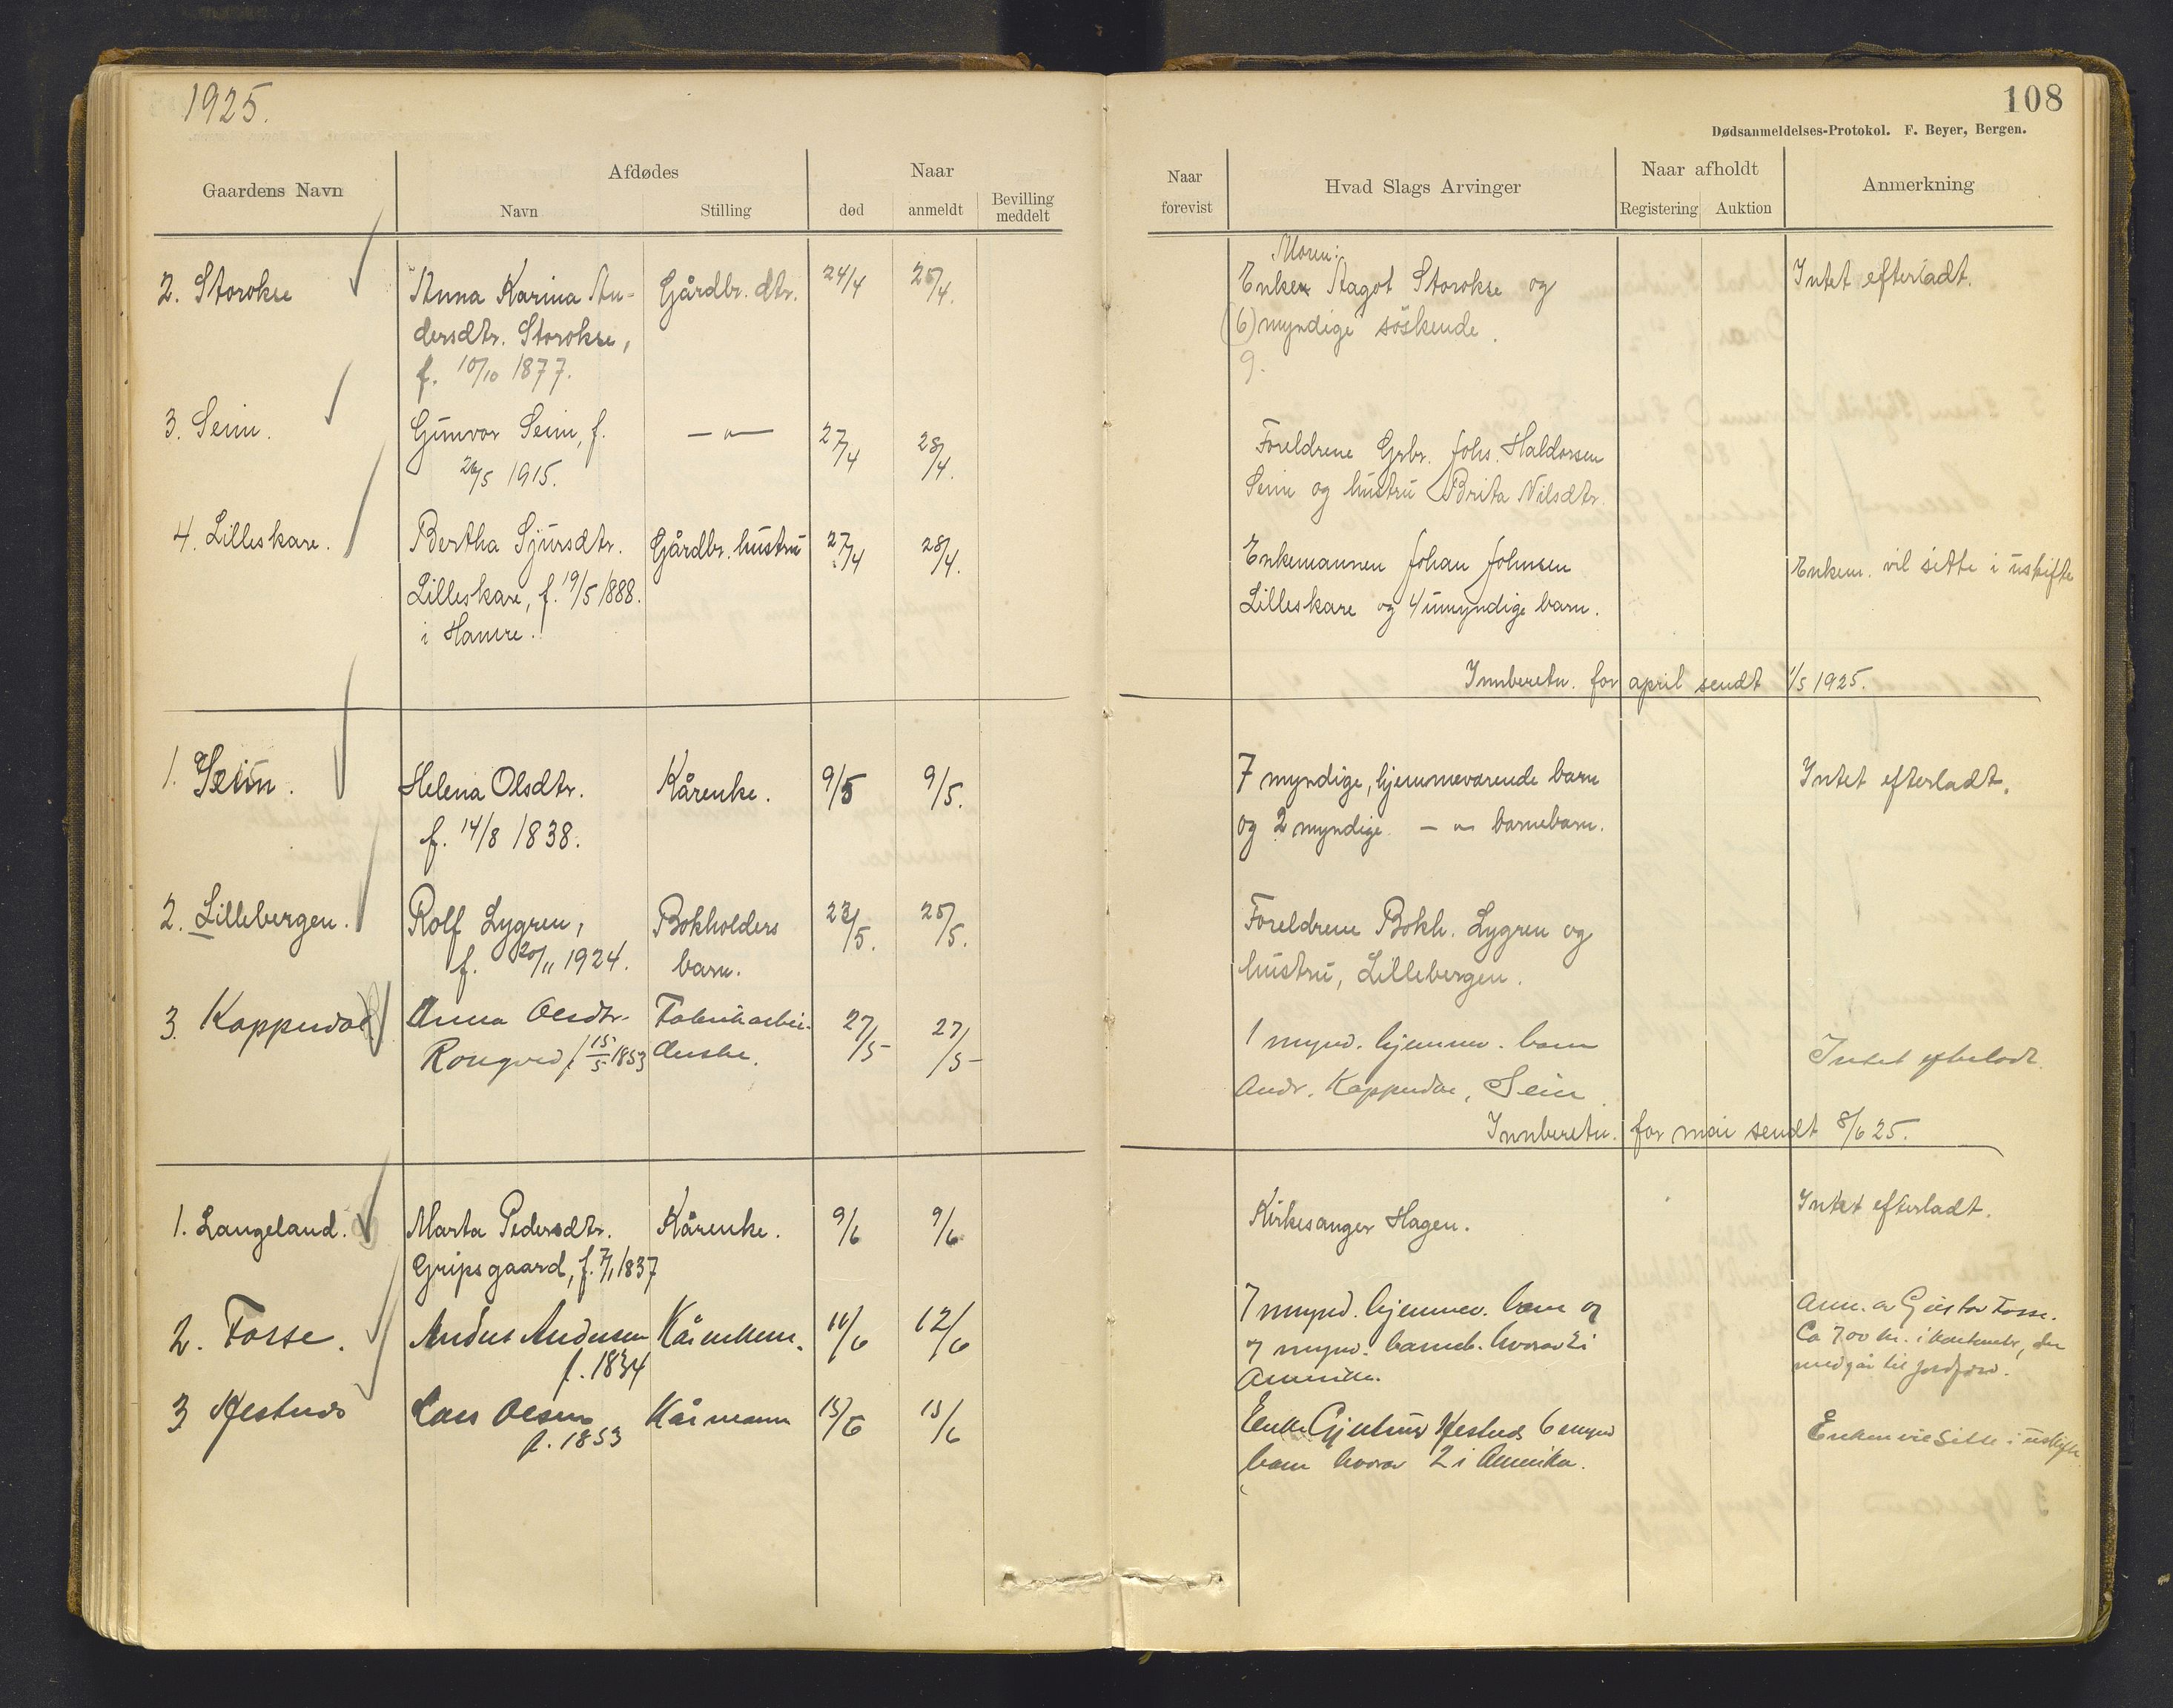 1925.
108
Dødsanmeldelses-Protokol. F. Beyer, Bergen.
Gaardens Navn
Afdødes
Navn
Stilling
Naar
død
anmeldt
Bevilling meddelt
Naar forevist
Hvad Slags Arvinger
Naar afholdt
Registering
Auktion
Anmerkning
2. Storokse
Anna Karina An-
dersdtr. Storokse,
f. 10/10 1877.
Gårdbr. dtr.
24/4
25/4.
Moren:
Enken Aagot Storokse og
(6) myndige søskende.
9.
Intet efterladt.
3. Seim.
Gunvor Seim, f.
26/5 1915.
— " —
27/4
28/4.
Foreldrene Grbr. Johs. Haldorsen
Seim og hustru Brita Nilsdtr.
4. Lilleskare.
Bertha Sjursdtr.
Lilleskare, f. 19/5 1888.
i Hamre.
Gårdbr. hustru
27/4
28/4.
Enkemannen Johan Johnsen
Lilleskare og 4 umyndige barn.
Enkem. vil sitte i uskifte
Innberetn. for april sendt 1/5 1925.
1. Seim.
Helena Olsdtr.
f. 14/8 1838.
Kårenke.
9/5
9/5.
7 myndige, hjemmeværende barn
og 2 myndige — " — barnebarn.
Intet efterladt.
2. Lillebergen.
Rolf Lygren,
f. 20/11 1924.
Bokholders
barn.
23/5.
25/5.
Foreldrene Bokh. Lygren og
hustru, Lillebergen.
3. Koppudal
Anna Olsdtr.
Rongved f. 15/5 1853
Fabrikarbei-
derske.
27/5
27/5
1 mynd. hjemmev. barn
Andr. Koppudal, Seim
Intet efterladt
Innberetn. for mai sendt 8/6 25.
1. Langeland.
Marta Pedersdtr.
Gripsgaard, f. 7/1 1837
Kårenke.
9/6
9/6
Kirkesanger Hagen.
Intet efterladt.
2. Fosse.
Anders Andersen
f. 1834
Kårenkem.
11/6
12/6
7 mynd. hjemmev. barn og
7 mynd. barneb. hvorav 2 i
Amerika.
Anm. av Gustav Fosse.
Ca 700 kr. i kontanter, der
medgår til jordferd.
3
Lars Olsen
f. 1853
Kårmann
15/6
15/6
Enke Gjertrud 6 mynd
barn hvorav 2 i Amerika.
Enken vil sitte i uskifte